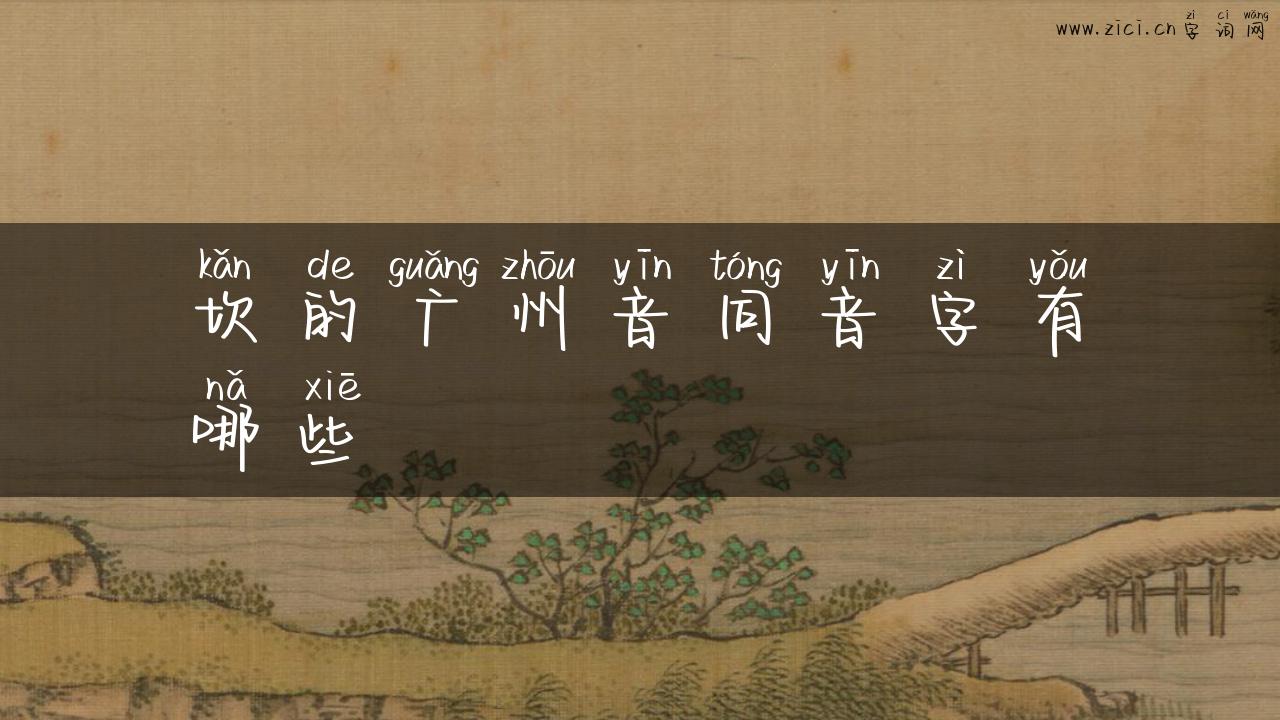 zì cí wǎng
www.zici.cn 字词网
kǎn de guǎng zhōu yīn tóng yīn zì yǒu
坎的广州音同音字有
nǎ xiē
哪些